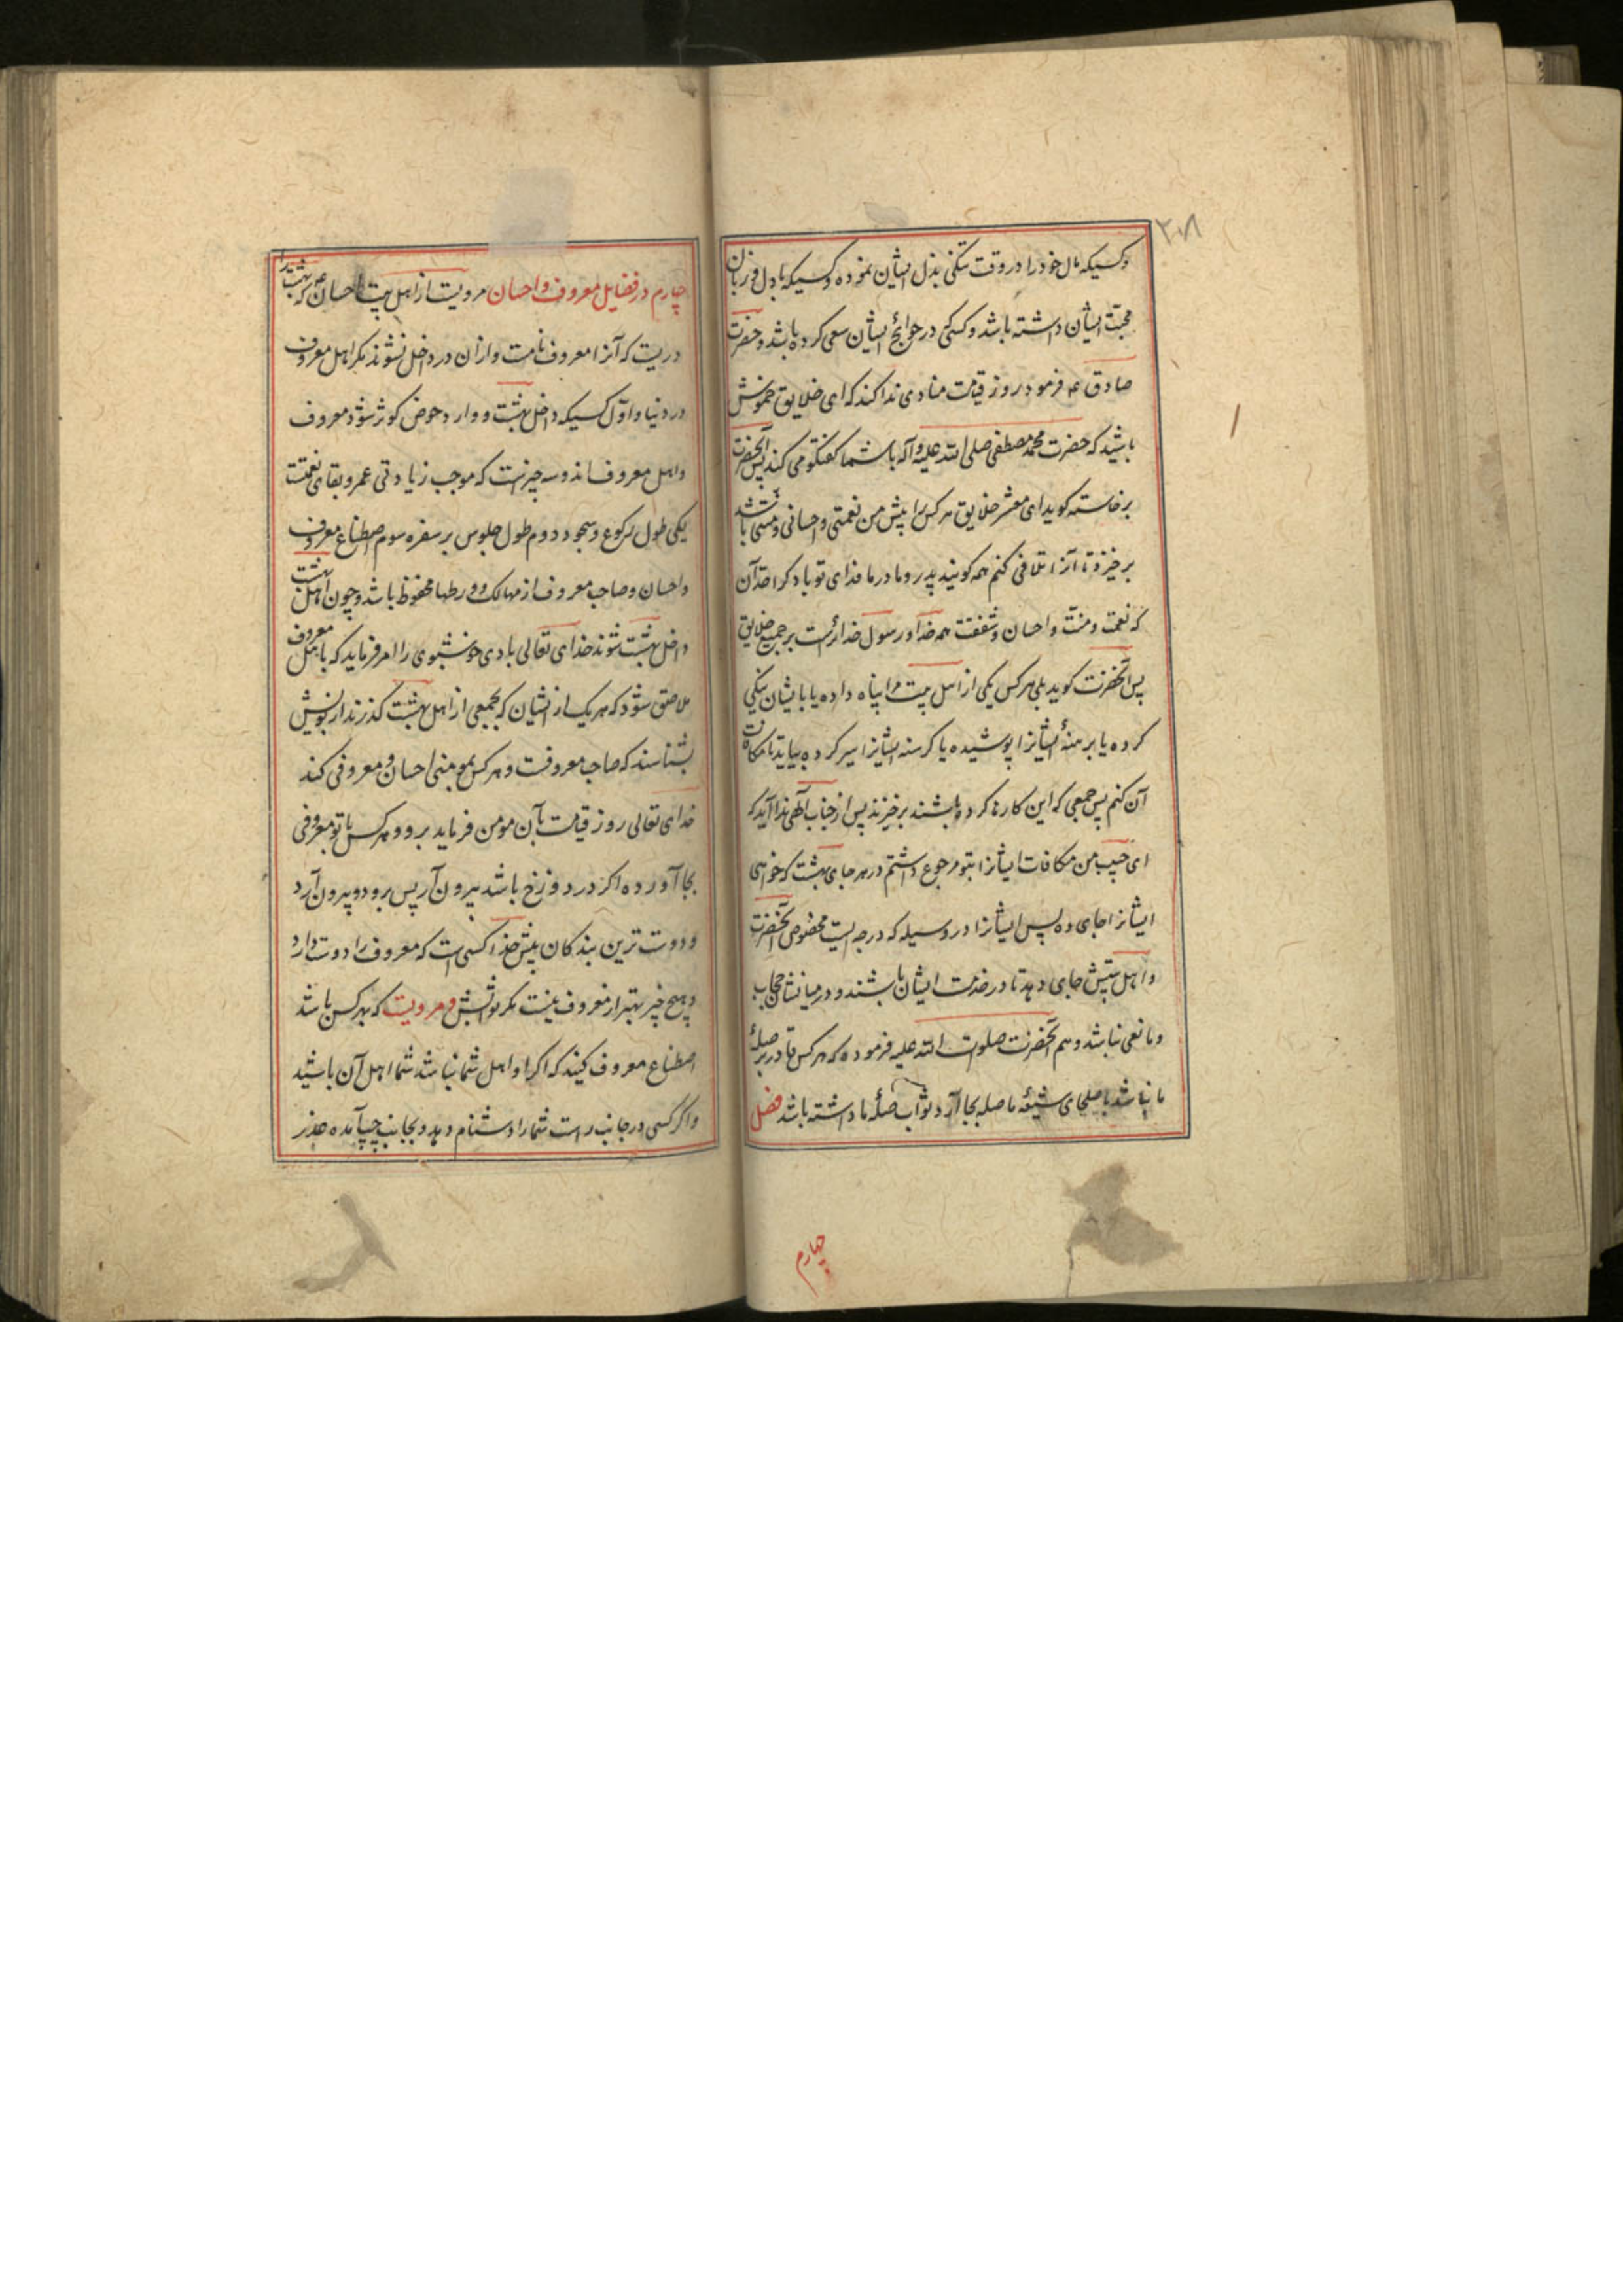 ۲۰۸
وکسیکه مال خود را در وقت تنکی بذل ایشان نموده وکسیکه بادل و زبان
محبت ایشان داشته باشد وکسی که در حوائج ایشان سعی کرده باشد و حضرت
صادق ع فرمود روز قیامت منادی ندا کند که ای خلایق خموش
باشید که حضرت محمد مصطفی صلی الله علیه وآله باشما کفتکو می کند پس آنحضرت
برخاسته کوید ای معشر خلایق هر کس را پیش من نعمتی و احسانی و منتی باشد
برخیزد تا آنرا تلافی کنم همه کویند پدر و مادر ما فدای تو باد کرا حد آن
که نعمت ومنت و احسان و شفقت همه خدا و رسول خدا راست بر جمیع خلایق
پس آنحضرت کوید بلی هر کس یکی از اهل بیت مرا پناه داده یا با یشان نیکی
کرده یا برهنهٔ ایشانرا پوشیده یا کرسنه ایشانرا سیر کرده بیاید تا مکافات
آن کنم پس جمعی که این کارها کرده باشند برخیزند پس از جناب آلهی ندا آید که
ای حبیب من مکافات ایشانرا بتو مرجوع داشتم در هر جای بهشت که خواهی
ایشانرا جای ده پس ایشانرا در وسیله که درجه ایست مخصوص آنحضرت
و اهل بیتش جای دهد تا در خدمت ایشان باشند و در میانشان حجاب
ومانعی نباشد و هم آنحضرت صلوات الله علیه فرموده که هر کس قادر بر صلهٔ
ما نباشد با صلحای شیعهٔ ما صله بجا آرد ثواب صلهٔ ما داشته باشد فصل
چهارم
چهارم در فضایل معروف و احسان مرویست از اهل بیت احسان ع که بهشت را
دریست که آنرا معروف نامست و از ان در داخل نشوند مکر اهل معروف
در دنیا و اوّل کسیکه داخل بهشت و وارد حوض کوثر شود معروف
واهل معروف اند و سه چیزست که موجب زیادتی عمر و بقای نعمتست
یکی طول رکوع و سجود دوم طول جلوس بر سفره سوم اصطناع معروف
واحسان و صاحب معروف از مهالک و ورطها محفوظ باشد و چون اهل بهشت
داخل بهشت شوند خدای تعالی بادی خوشبوی را امر فرماید که با اهل معروف
ملاصق شود که هر یک از ایشان که بجمعی از اهل بهشت کذرند از بویش
بشناسند که صاحب معروفست و هر کس بمومنی احسان و معروفی کند
خدای تعالی روز قیامت بآن مومن فرماید برو و هر کس با تو معروفی
بجا آورده اکر در دوزخ باشد بیرون آر پس برود و بیرون آرد
و دوست ترین بندکان پیش خدا کسی است که معروف را دوست دارد
و هیچ چیز بهتر از معروف نیست مکر ثوابش و مرویست که بهر کس باشد
اصطناع معروف کنید که اکر او اهل شما نباشد شما اهل آن باشید
و اکر کسی در جانب راست شما را دشنام دهد و بجانب چپ آمده عذر